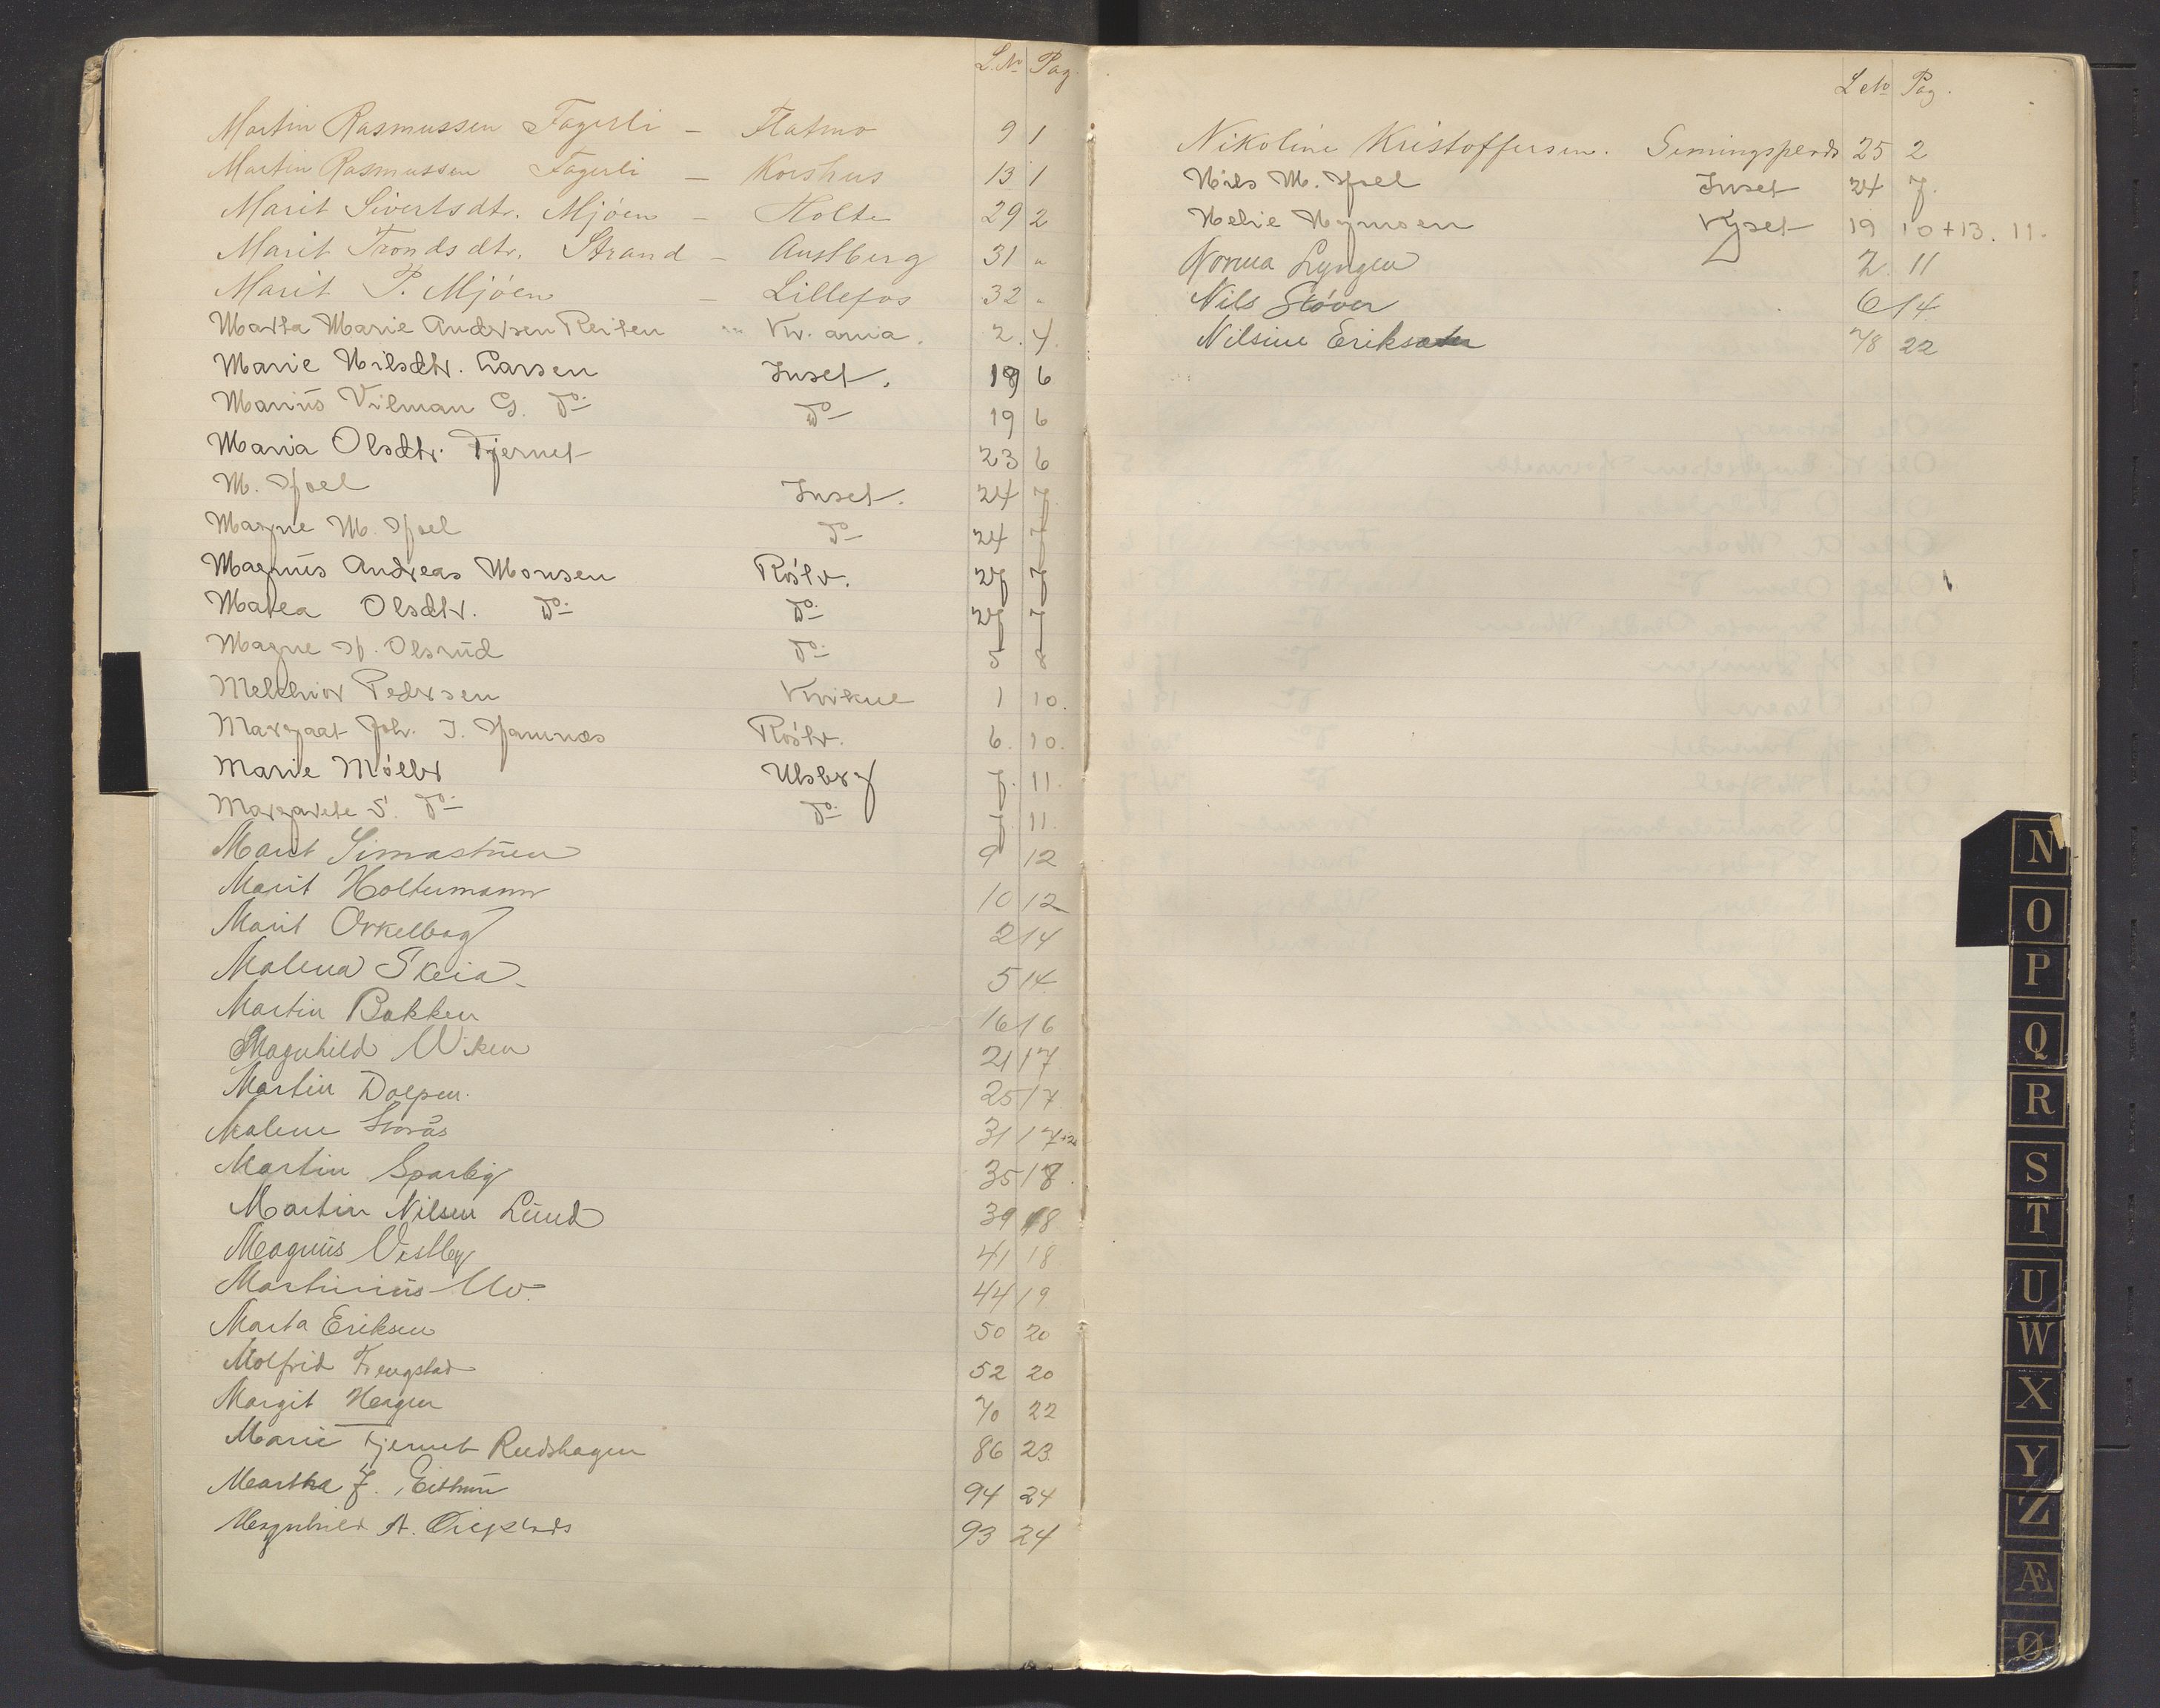 L.No Pag.
Martin Rasmussen Fagerli – Flatmo 9 1
Martin Rasmussen Fagerli – Korshus 13 1
Marit Sivertsdtr. Mjöen – Holte 29 2
Marit Trondsdtr. Strand – Austberg 31 "
Marit P. Mjöen – Lillefos 32 "
Marta Marie Andersen Reiten " Kr. ania. 2. 4.
Marie Nilsdtr. Larsen Inset. 18 6
Marius Vilman G. Do Do 19 6
Maria Olsdtr. Tjernet 23 6
M. Hoel Inset. 24 7
Magne M. Hoel Do 24 7
Magnus Andreas Monsen Röstv. 27 7
Matea Olsdtr. Do Do 27 7
Magne H. Olsrud Do 5 8
Melchior Pedersen Kvikne 1 10.
Margaat Joh. J. Hamnes Röstv. 6. 10.
Marie Möller Ulsberg 7. 11.
Margarete S. Do Do 7. 11.
Marit Simastuen 9 12
Marit Holtermann 10 12
Marit Orkelbog 2 14
Malena Skeia 5 14
Martin Bakken 16 16
Magnhild Wiken 21 17
Martin Dolpen. 25 17
Malene Storås 31 17+2
Martin Sparby 35 18.
Martin Nilsen Lund 39 18
Magnus Vestby 41 18
Martinius Uv. 44 19
Marta Eriksen 50 20
Molfrid Frengstad 52 20
Margit Hergen 70 22
Marie Tjernet Rudshagen 86 23
Martha J. Eithun 94 24
Magnhild A. 93 24
L.No Pag.
Nikoline Kristoffersen. Gemingsplads 25 2
Nils M. Hoel Inset 24 7.
Nelie Nymoen Vyset 19 10+13. 11.
Norma Lyngen 2. 11
Nils Stöver 6 14
Nilsine Erikssen 78 22
N
O
P
Q
R
S
T
U
W
X
Y
Z
Æ
Ø